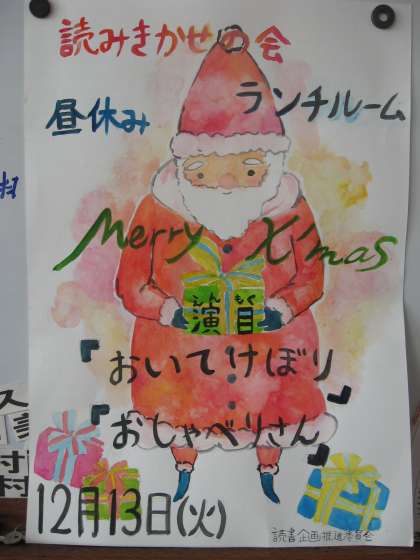 読みきかせの会
昼休み ランチルーム
Merry X'mas
えんもく
演目
『おいてけぼり』
『おしゃべりさん』
12月13日(火)
読書企画推進委員会